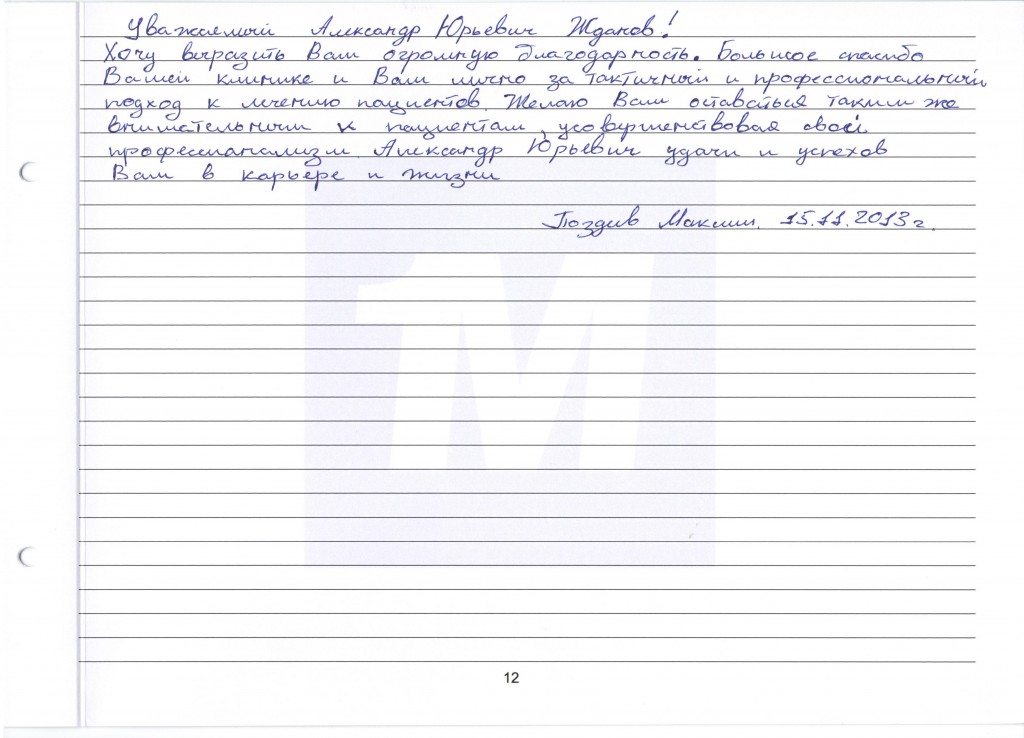 Уважаемый Александр Юрьевич Жданов!
Хочу выразить Вам огромную благодарность. Большое спасибо
Вашей клинике и Вам лично за тактичный и профессиональный
подход к лечению пациентов. Желаю Вам оставаться таким же
внимательным к пациентам, усовершенствовая свой
профессианализм. Александр Юрьевич удачи и успехов
Вам в карьере и жизни
Максим. 15.11.2013г.
1М
12